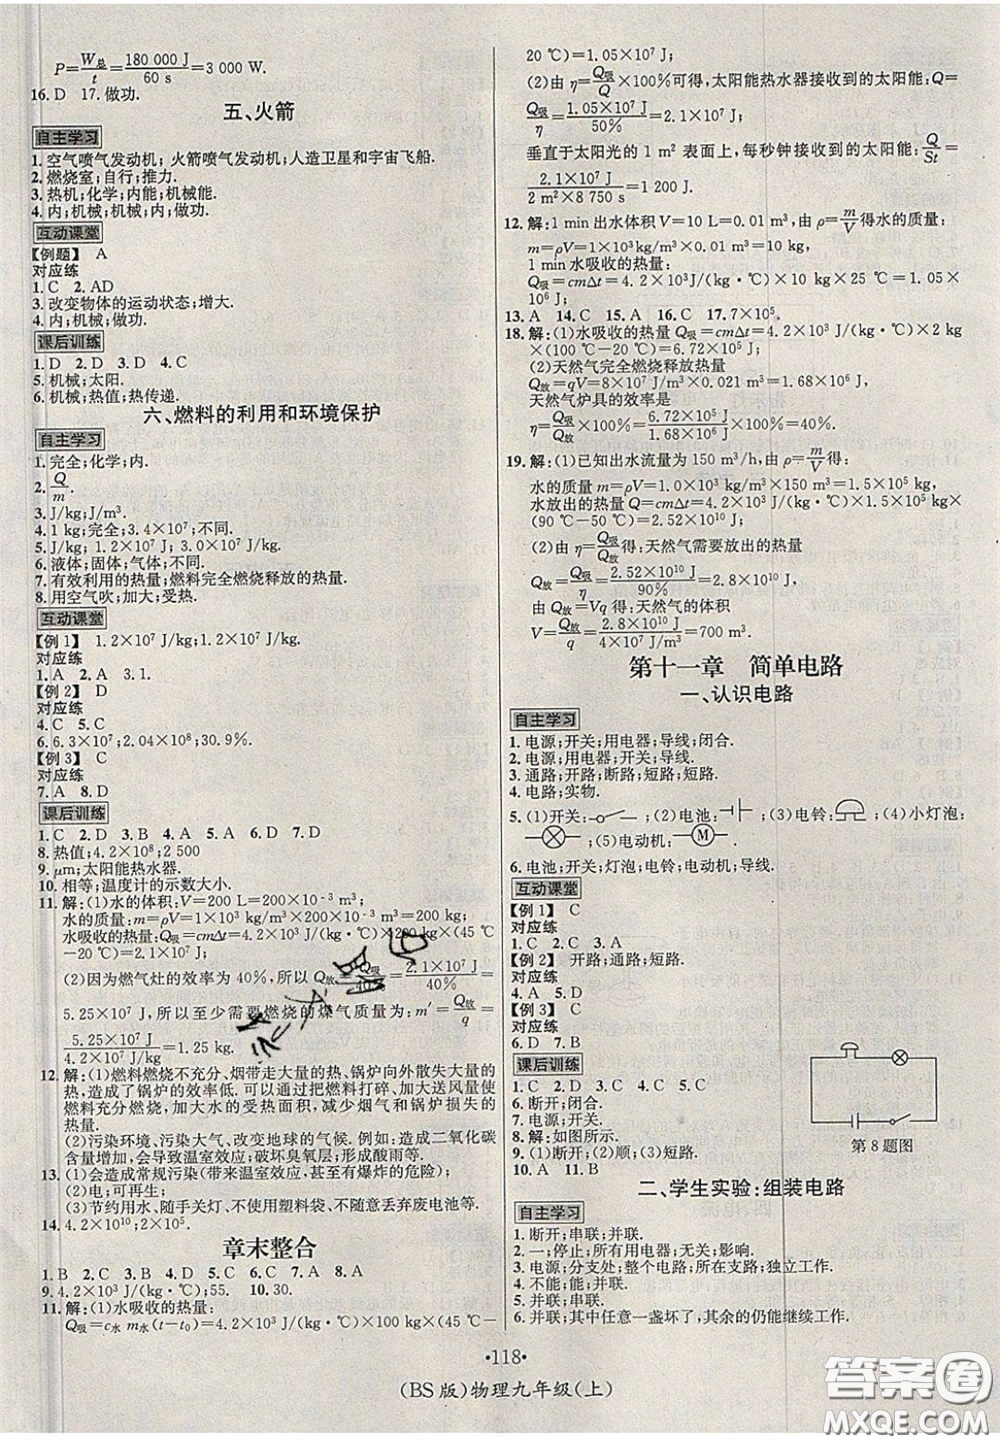 P=W总/t=180 000 J/60 s=3 000 W.
16. D　17. 做功.
五、火箭
自主学习
1. 空气喷气发动机；火箭喷气发动机；人造卫星和宇宙飞船.
2. 燃烧室；自行；推力.
3. 热机；化学；内能；机械能.
4. 内；机械；机械；内；做功.
互动课堂
【例题】　A
对应练
1. C　2. AD
3. 改变物体的运动状态；增大.
4. 内；机械；做功.
课后训练
1. D　2. D　3. D　4. C
5. 机械；太阳.
6. 机械；热值；热传递.
六、燃料的利用和环境保护
自主学习
1. 完全；化学；内.
2. Q/m.
3. J/kg；J/m³.
4. 1 kg；完全；3.4×10⁷；不同.
5. J/kg；1.2×10⁷ J；3.0×10⁷ J.
6. 液体；固体；气体；不同.
7. 有效利用的热量；燃料完全燃烧释放的热量.
8. 用空气吹；加大；受热.
互动课堂
【例 1】　1.2×10⁷ J/kg；1.2×10⁷ J/kg.
对应练
1. A　2. A　3. 1.
【例 2】　D
对应练
4. C　5. C
6. 6.3×10⁷；2.04×10⁸；30.9%.
【例 3】　C
对应练
7. A　8. D
课后训练
1. C　2. D　3. B　4. A　5. A　6. D　7. D
8. 热值；4.2×10⁸；2 500
9. μm；太阳能热水器.
10. 相等；温度计的示数大小.
11. 解：(1)水的体积：V=200 L=200×10⁻³ m³；
水的质量：m=ρV=1×10³ kg/m³×200×10⁻³ m³=200 kg；
水吸收的热量：Q吸=cmΔt=4.2×10³J/(kg·℃)×200 kg×(45 ℃
−20 ℃)=2.1×10⁷ J.
(2)因为燃气灶的效率为40%，所以Q放=Q吸/40%=2.1×10⁷ J/40%=
5.25×10⁷ J，所以至少需要燃烧的煤气质量为：m′=Q放/q=
5.25×10⁷ J/4.2×10⁷ J/kg=1.25 kg.
12. 解：(1)燃料燃烧不充分、烟带走大量的热、锅炉向外散失大量的
热，造成了锅炉的效率低. 可以通过把燃料打碎、加大送风量使
燃料充分燃烧，加大水的受热面积，减少烟气和锅炉损失的
热量.
(2)污染环境、污染大气、改变地球的气候. 例如：造成二氧化碳
含量增加，会导致温室效应；破坏臭氧层；形成酸雨等.
13. (1)会造成常规污染(带来温室效应，甚至有爆炸的危险)；
(2)开车和步行；
(3)节约用水、随手关灯、不使用塑料袋、不随意丢弃废电池等.
14. 4.2×10¹⁰；2×10⁵.
章末整合
1. B　2. C　3. C　4. D　5. C　6. C　7. A　8. A
9. 4.2×10³ J/(kg·℃)；55.　10. 30.
11. 解：(1)水吸收的热量：
Q吸=c水 m水(t−t₀)=4.2×10³ J/(kg·℃)×100 kg×(45 ℃−
20 ℃)=1.05×10⁷ J；
(2)由 η=Q吸/Q×100%可得，太阳能热水器接收到的太阳能：Q=
Q吸/η=1.05×10⁷ J/50%=2.1×10⁷ J，
垂直于太阳光的1 m² 表面上，每秒钟接收到的太阳能：Q/St=
2.1×10⁷ J/2 m²×8 750 s=1 200 J.
12. 解：1 min 出水体积 V=10 L=0.01 m³，由 ρ=m/V得水的质量：
m=ρV=1×10³kg/m³×0.01 m³=10 kg，
1 min 水吸收的热量：
Q吸=cmΔt=4.2×10³J/(kg·℃)×10 kg×25 ℃=1.05×
10⁶ J；
13. A　14. C　15. A　16. C　17. 7×10⁵.
18. 解：(1)水吸收的热量 Q吸=cmΔt=4.2×10³ J/(kg·℃)×2 kg
×(100 ℃−20 ℃)=6.72×10⁵ J.
(2)天然气完全燃烧释放热量
Q放=qV=8×10⁷ J/m³×0.021 m³=1.68×10⁶ J，
天然气炉具的效率是
Q吸/Q放×100%=6.72×10⁵ J/1.68×10⁶ J×100%=40%.
19. 解：(1)已知出水流量为 150 m³/h，由 ρ=m/V得：
水的质量 m=ρV=1.0×10³ kg/m³×150 m³=1.5×10⁵ kg，
水放出的热量 Q=cmΔt=4.2×10³ J/(kg·℃)×1.5×10⁵ kg
×(90 ℃−50 ℃)=2.52×10¹⁰ J
(2)由 η=Q吸/Q放得：天然气需要放出的热量
Q放=Q吸/η=2.52×10¹⁰ J/90%=2.8×10¹⁰ J，
由 Q放=Vq 得：天然气的体积
V=Q放/q=2.8×10¹⁰ J/4×10⁷ J/m³=700 m³.
第十一章　简单电路
一、认识电路
自主学习
1. 电源；开关；用电器；导线；闭合.
2. 电源；用电器；开关；导线.
3. 通路；开路；断路；短路；短路.
4. 电路；实物.
5. (1)开关：；(2)电池：；(3)电铃：；(4)小灯泡：
；(5)电动机：M
6. 电池；开关；灯泡；电铃；电动机；导线.
互动课堂
【例 1】　C
对应练
1. C　2. C　3. A
【例 2】　开路；通路；短路.
对应练
4. A　5. D
【例 3】　C
对应练
6. C
课后训练
1. C　2. D　3. C　4. D　5. D
6. 断开；闭合.
7. 电源；开关.
8. 解：如图所示.
9. (1)断开；(2)顺；(3)短路.
10. A　11. B
第 8 题图
二、学生实验：组装电路
自主学习
1. 断开；串联；并联.
2. 一；停止；所有用电器；无关；影响.
3. 电源；分支处；整个电路；所在支路；独立工作.
4. 不能；能；并联.
5. 并联；串联；串联.
6. 并联；其中任意一盏坏了，其余的仍能继续工作.
·118·
(BS版)物理九年级(上)
答案圈
MXQE.COM